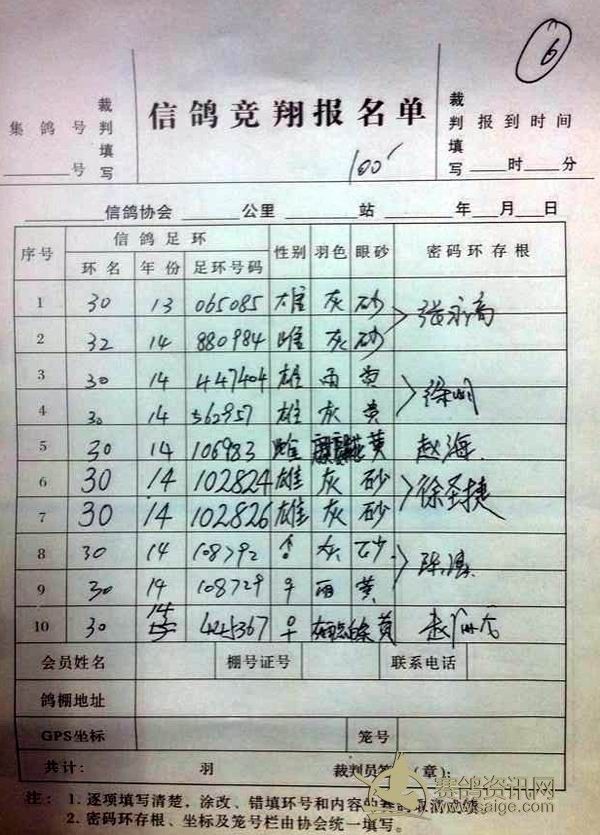 6
裁判填写
集鸽号
____号
信鸽竞翔报名单
100
裁判填写
报到时间
____时____分
______信鸽协会 ______公里 ______站 ______年____月____日
序号 信鸽足环 性别 羽色 眼砂 密码环存根
环名 年份 足环号码
1 30 13 065085 雄 灰 砂
2 32 14 880984 雌 灰 砂
3 30 14 447404 雄 雨 黄
4 30 14 562957 雄 灰 黄
5 30 14 106983 雌 黄 赵海
6 30 14 102824 雄 灰 砂 徐圣捷
7 30 14 102826 雄 灰 砂
8 30 14 108792 ♂ 灰 砂
9 30 14 108729 ♀ 雨 黄
10 30 14 445367 ♀ 黄
会员姓名 棚号证号 联系电话
鸽棚地址
GPS坐标 笼号
共计: 羽 裁判员签(章):
注: 1. 逐项填写清楚，涂改、错填环号和内容的赛鸽取消成绩。
2. 密码环存根、坐标及笼号栏由协会统一填写。
赛鸽资讯网
.aige.com